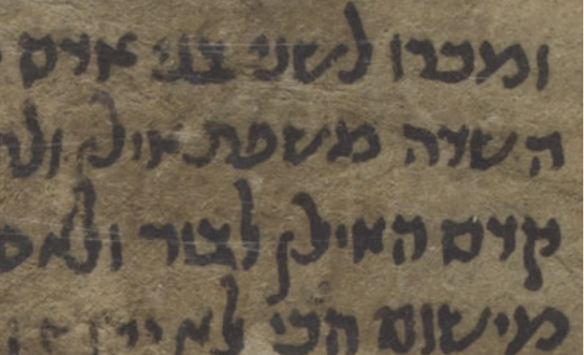 ומכרו לשני בני אדם
השדה משפת
קודם האילן לבור ולא
מישום הכי לא